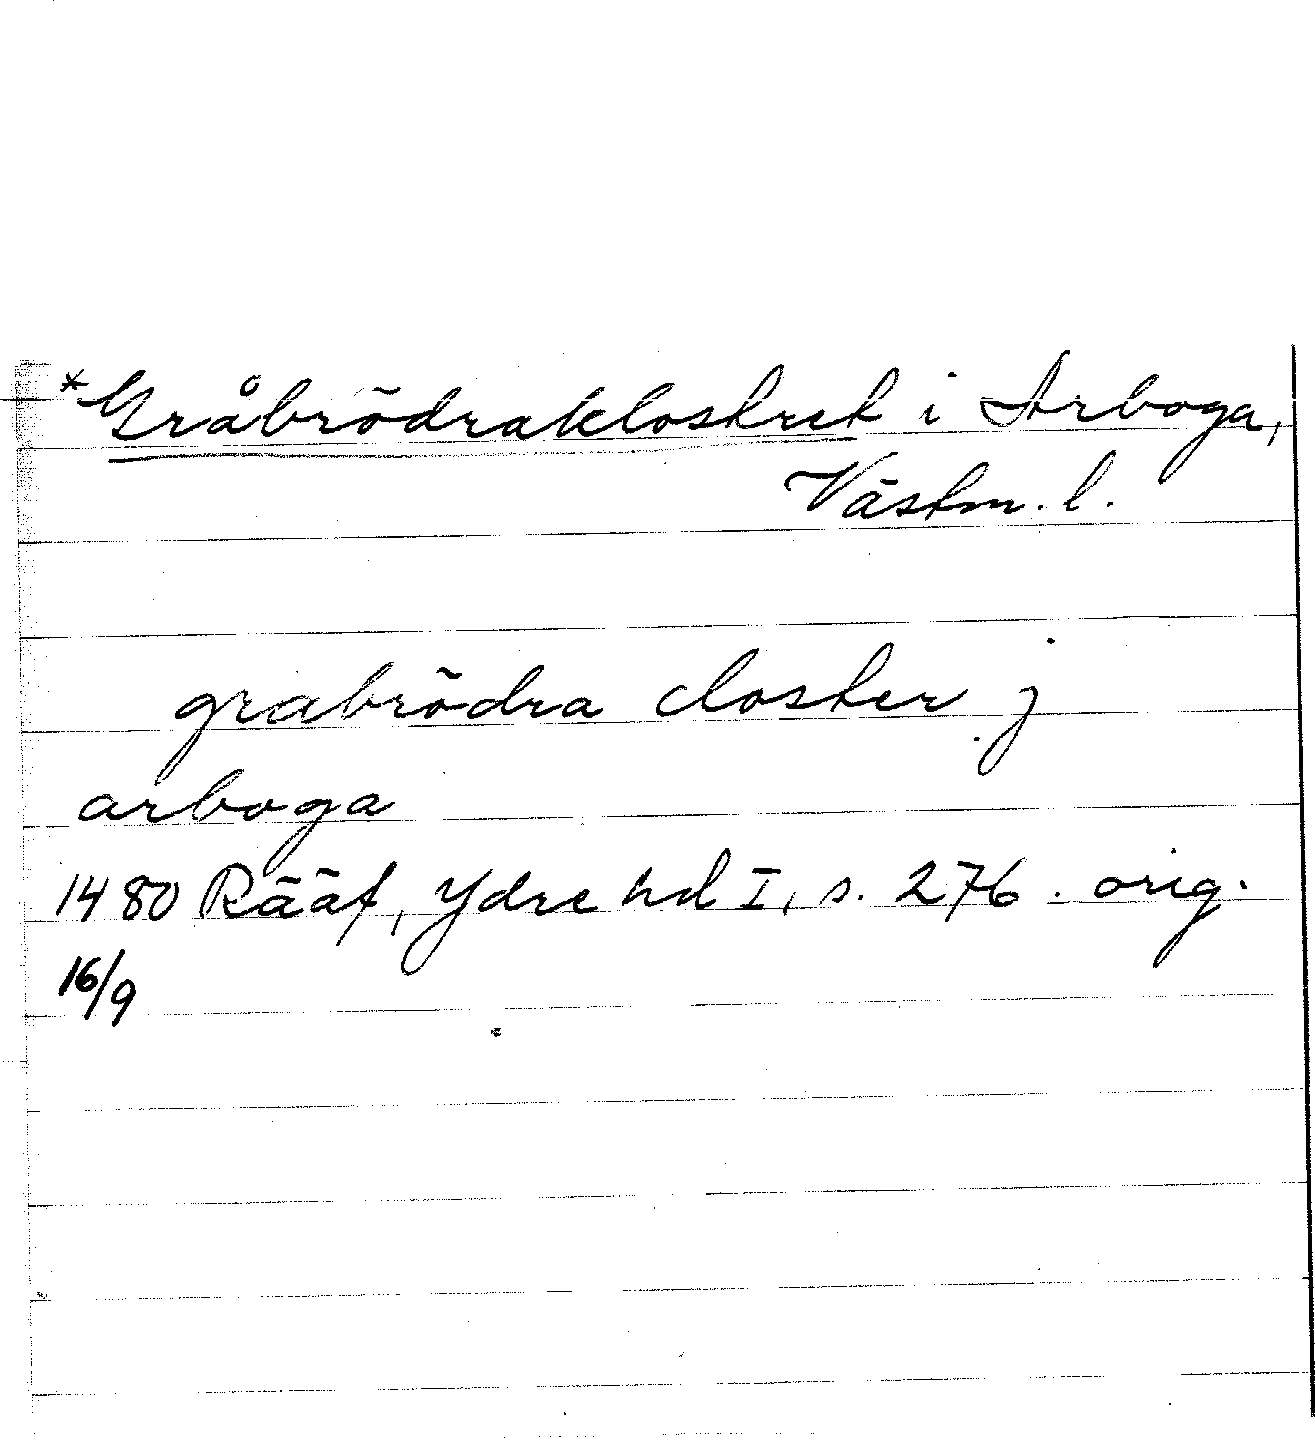 *Gråbrödraklostret i Arboga,
Västm. l.
grabrödra closter j
arboga
1480 Rääf, Ydre hd I, s. 276. orig.
16/9